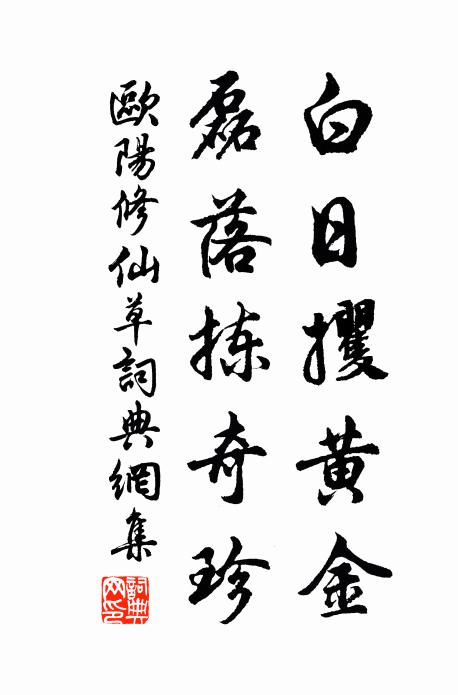 白日攫黄金
磊落揀奇珍
歐陽修仙草詞典網集
詞典
網印